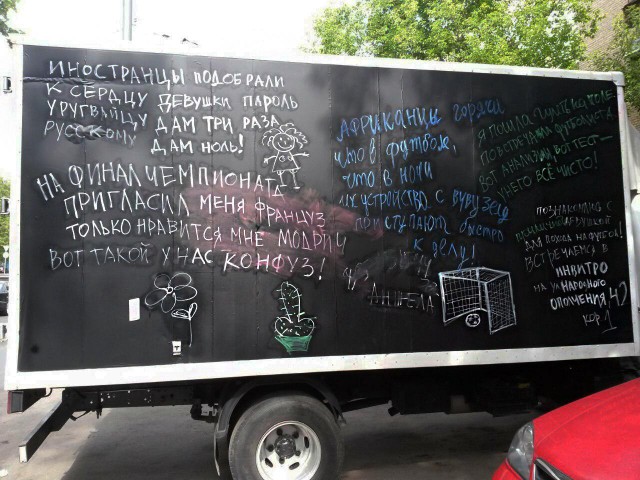 ИНОСТРАНЦЫ ПОДОБРАЛИ
К СЕРДЦУ ДЕВУШКИ ПАРОЛЬ
УРУГВАЙЦУ ДАМ ТРИ РАЗА
РУССКОМУ ДАМ НОЛЬ!
НА ФИНАЛ ЧЕМПИОНАТА
ПРИГЛАСИЛ МЕНЯ ФРАНЦУЗ
ТОЛЬКО НРАВИТСЯ МНЕ МОДРИЧ
ВОТ ТАКОЙ У НАС КОНФУЗ!
АФРИКАНЦЫ ГОРЯЧИ
ЧТО В ФУТБОЛЕ,
ЧТО В НОЧИ
УСТРОЙСТВО С ВУВУЗЕЛ
ПРИСТУПАЮТ БЫСТРО
К ДЕЛУ!
АНЖЕЛА
Я ПОШЛА
ПОВСТРЕЧАЛА ФУТБОЛИСТА
ВОТ АНАЛИЗЫ, ВОТ ТЕСТ—
У НЕГО ВСЁ ЧИСТО!
ПОЗНАКОМЛЮСЬ С
ДЕВУШКОЙ
ДЛЯ ПОХОДА НА ФУТБОЛ!
ВСТРЕЧАЕМСЯ В
ИНВИТРО
НА УЛ. НАРОДНОГО
ОПОЛЧЕНИЯ, 42
КОР. 1